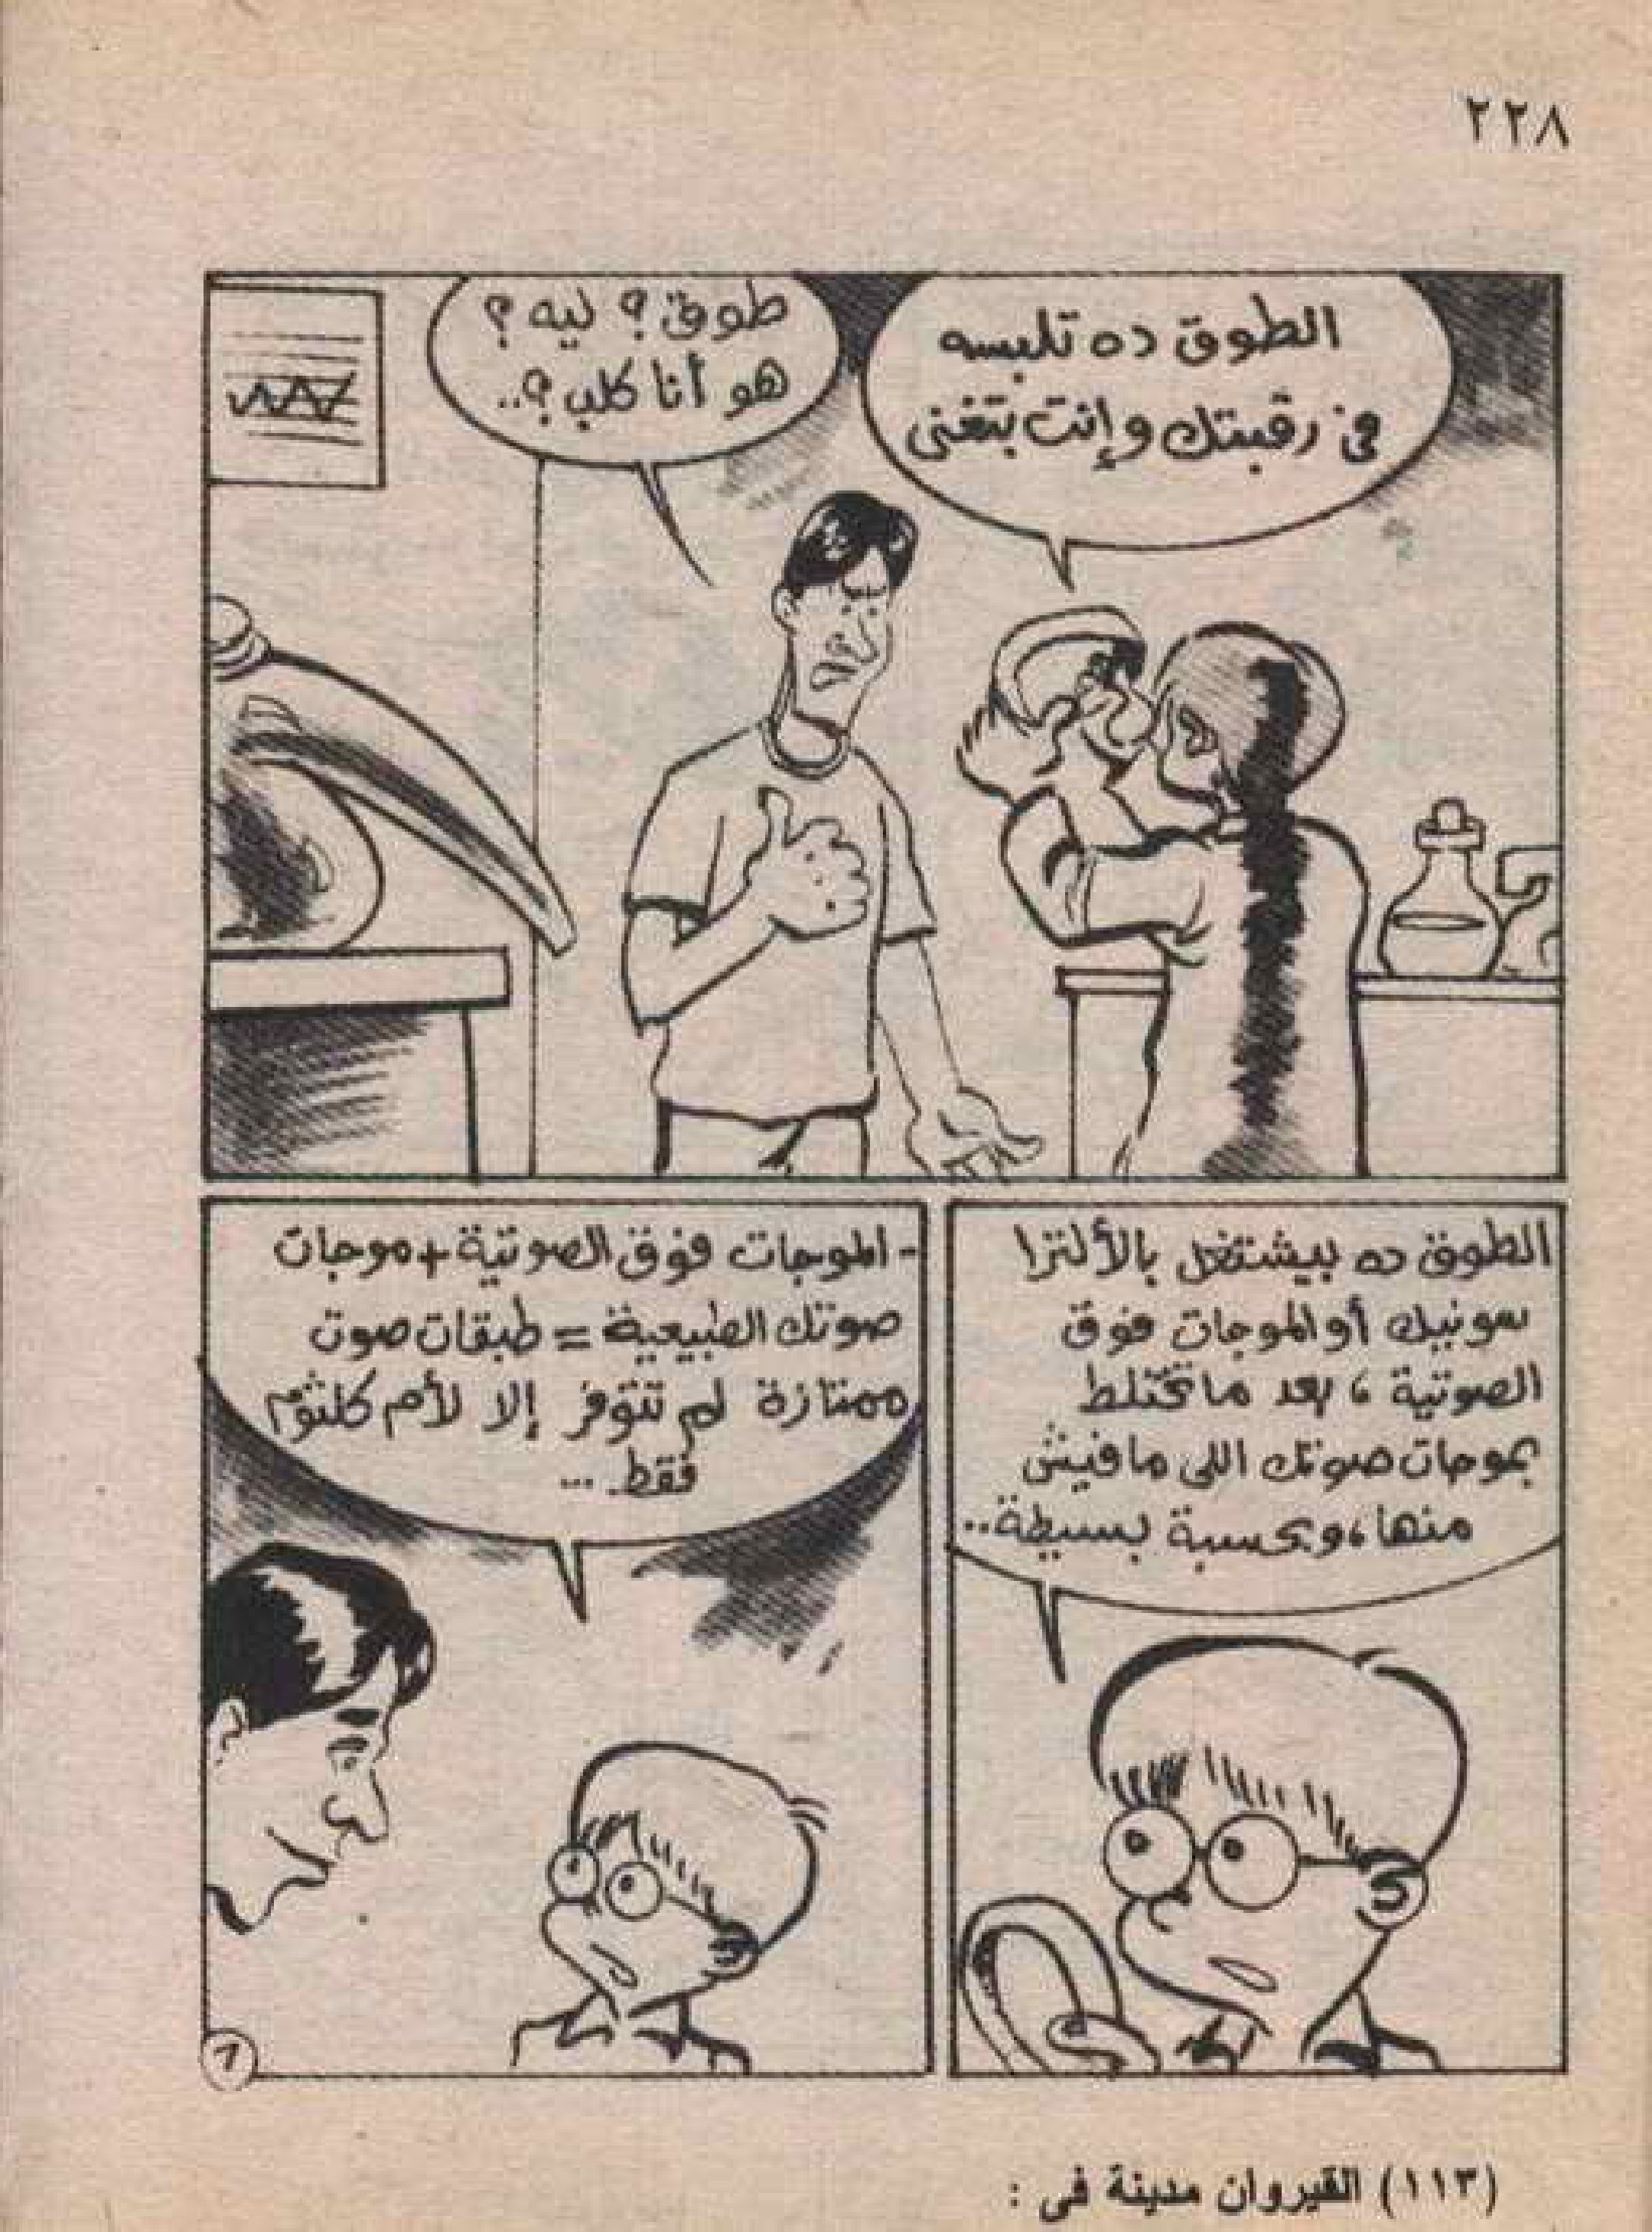 ٢٢٨
الطوق ده تلبسه
فى رقبتك وإنت بتغنى
طوق؟ ليه؟
هو أنا كلب؟..
الطوق ده بيشتغل بالألترا
سونيك أو الموجات فوق
الصوتية، بعد ما تختلط
بموجات صوتك اللى مافيش
منها، وبحسبة بسيطة..
- الموجات فوق الصوتية + موجات
صوتك الطبيعية = طبقات صوت
ممتازة لم تتوفر إلا لأم كلثوم
فقط...
(١١٣) القيروان مدينة فى :